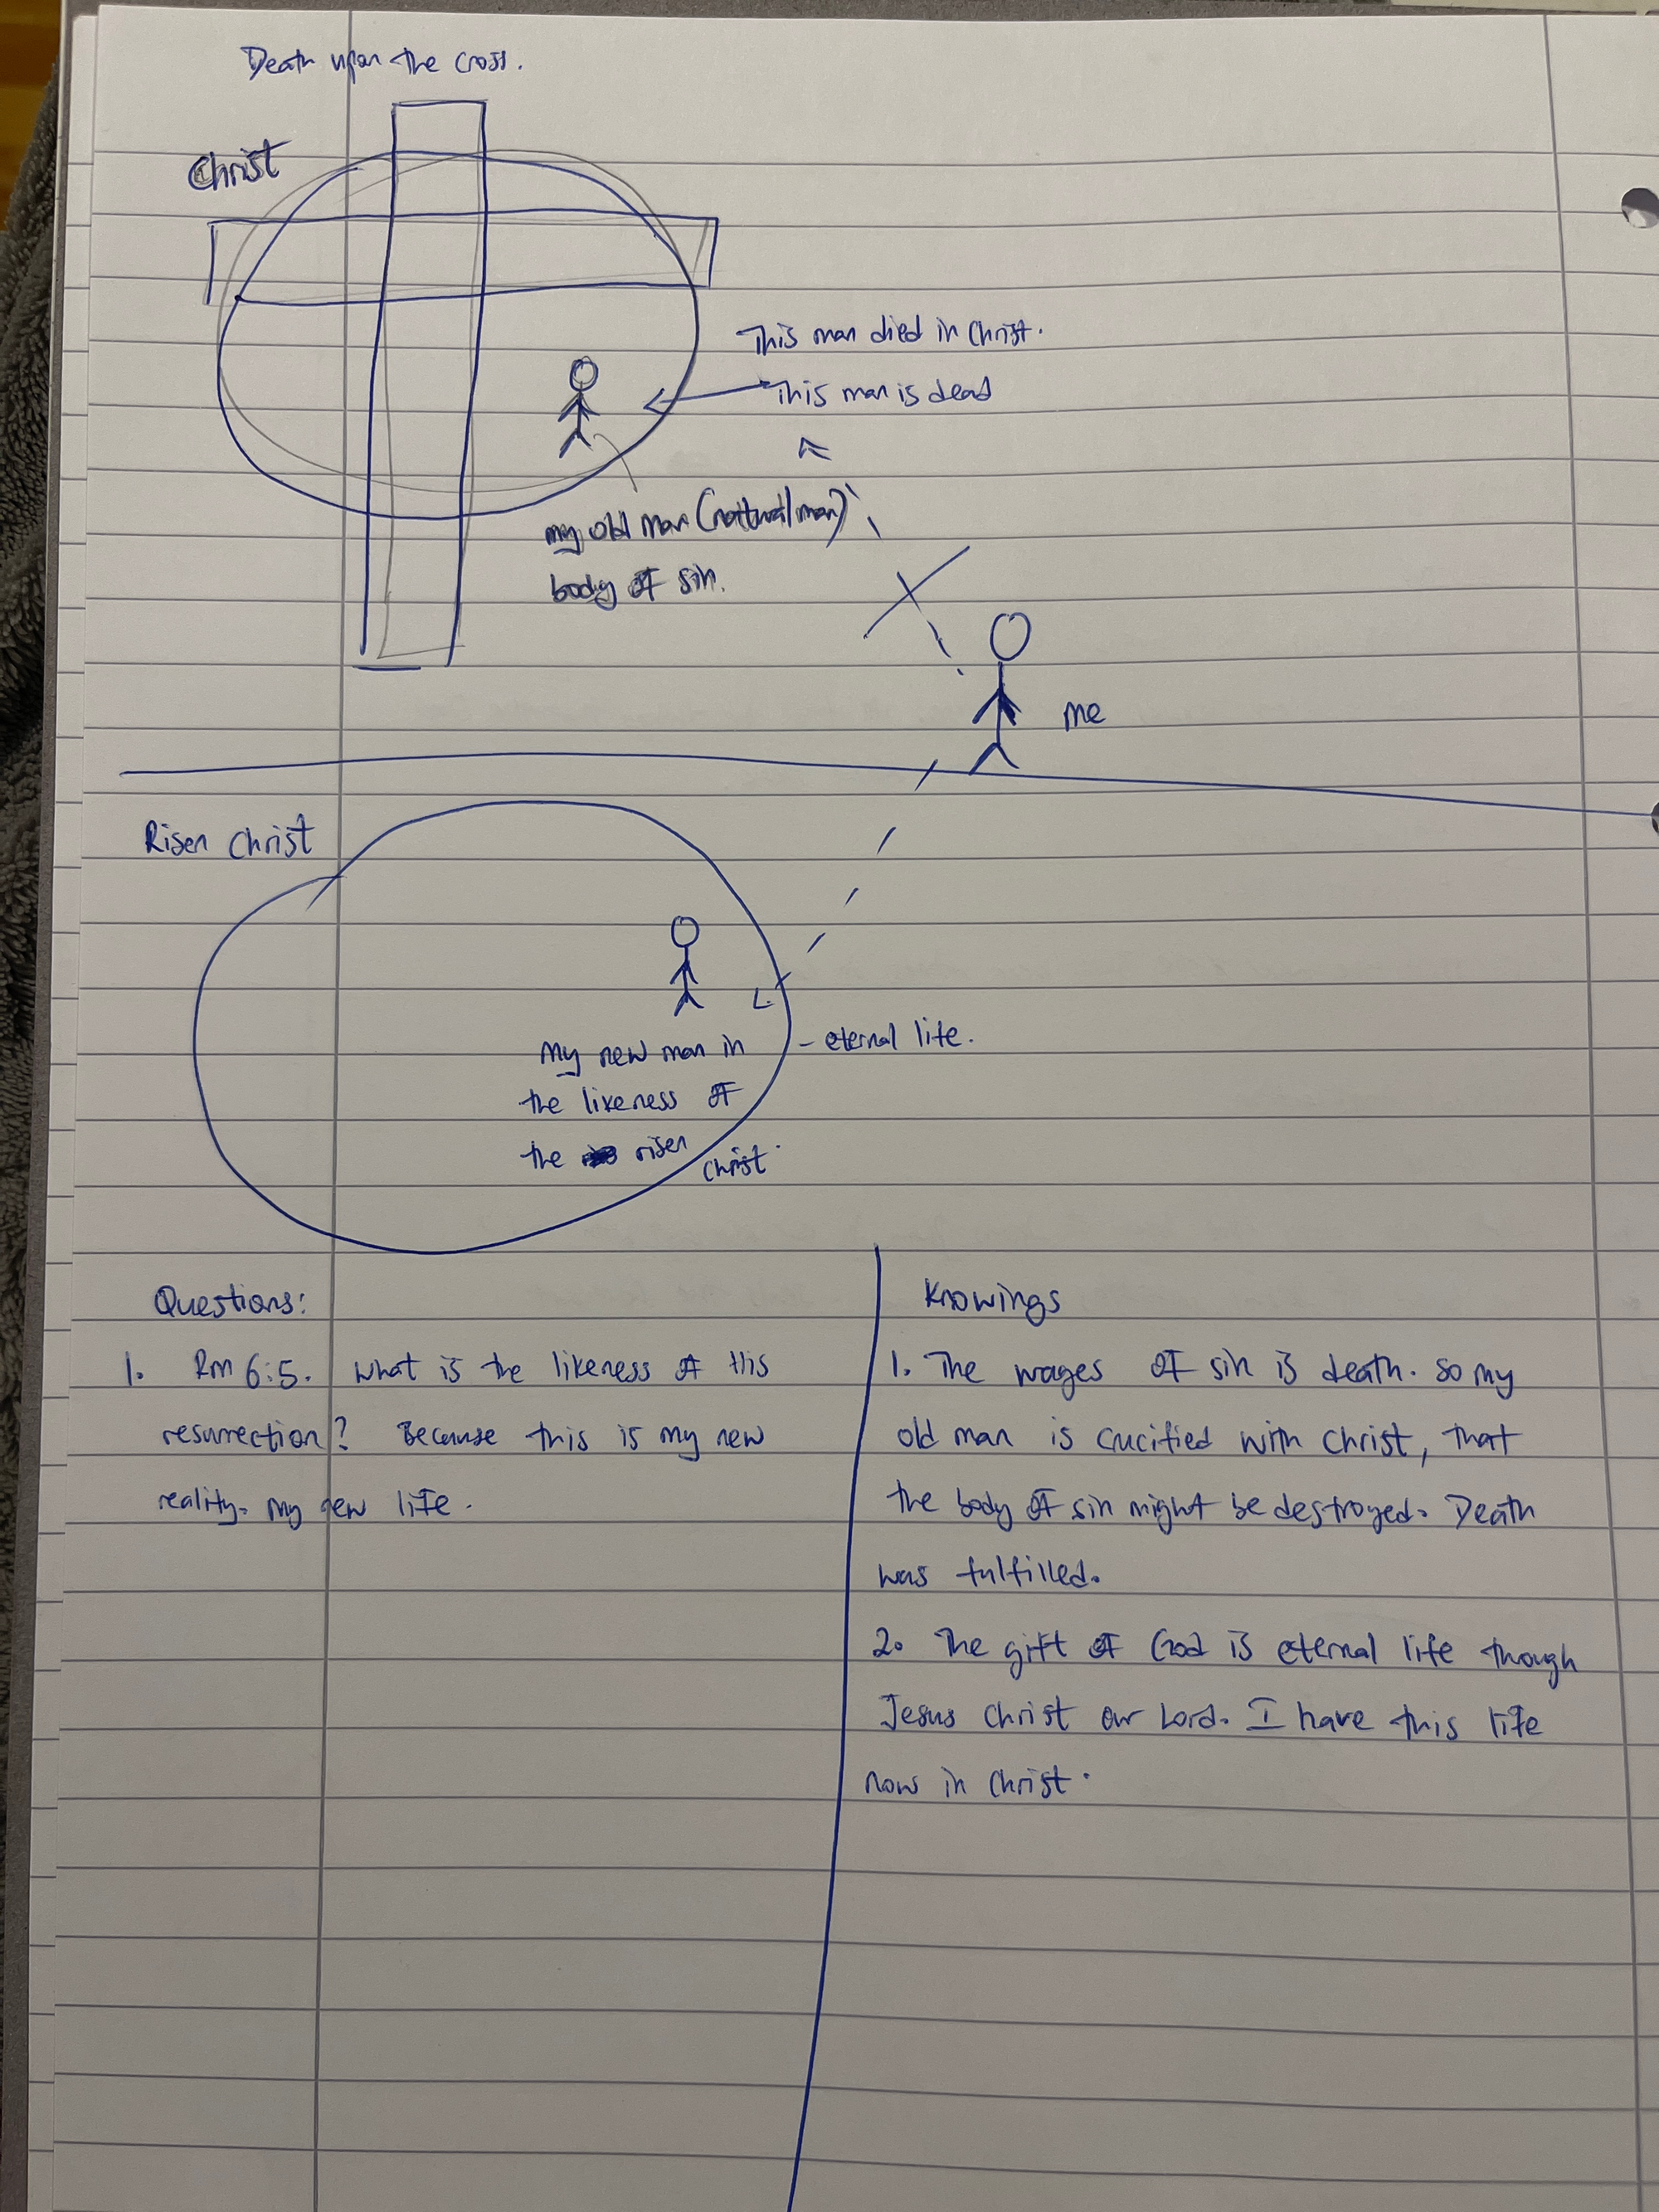 Death upon the cross.
Christ
This man died in Christ.
This man is dead
my old man (natural man)
body of sin.
me
Risen Christ
My new man in
the likeness of
the risen Christ.
- eternal life.
Questions:
1. Rm 6:5. What is the likeness of His
resurrection? Because this is my new
reality. My new life.
Knowings
1. The wages of sin is death. So my
old man is crucified with Christ, that
the body of sin might be destroyed. Death
was fulfilled.
2. The gift of God is eternal life though
Jesus Christ our Lord. I have this life
now in Christ.